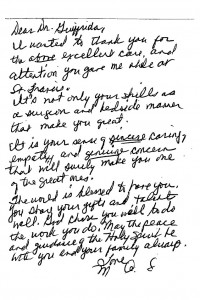 Dear Dr. Guiffrida,
I wanted to thank you for
the above excellent care and
attention you gave me while at
St. Francis.
It's not only your skills as
a surgeon and bedside manner
that make you great.
It is your sense of sincere caring,
empathy, and genuine concern
that will surely make you one
of the great ones.
The world is blessed to have you.
You share your gifts and talent
well. God chose you well
the work you do. May the peace
and guidance of the Holy Spirit be
with you and your family always.
Love
M C S